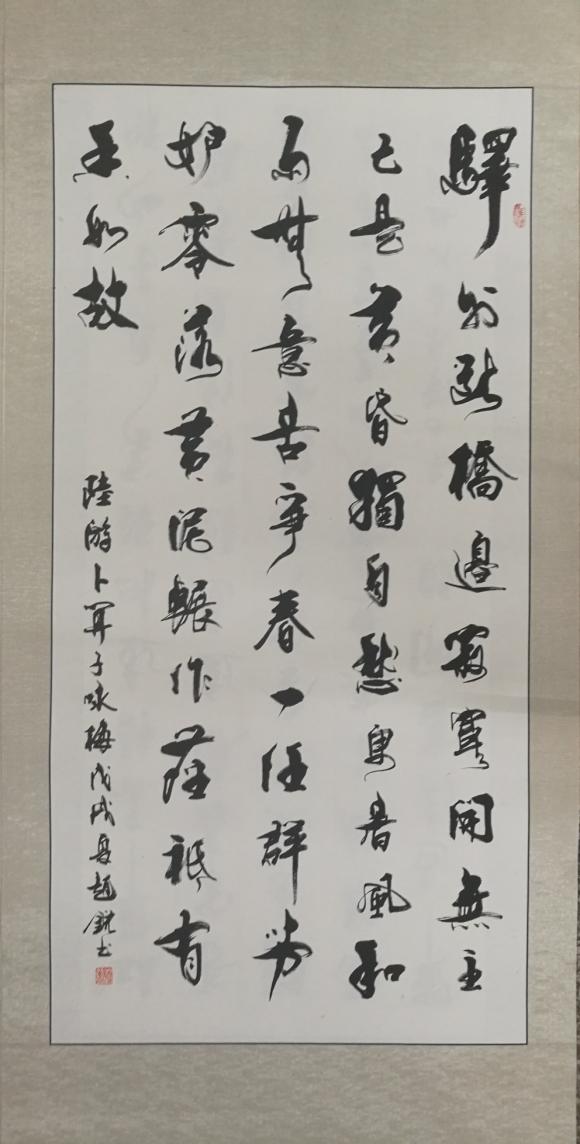 驛外斷橋邊寂寞開無主
已是黃昏獨自愁更著風和
雨無意苦爭春一任群芳
妒零落黃泥輾作塵祇有
香如故
陸游卜算子咏梅戊戌夏趙銳书